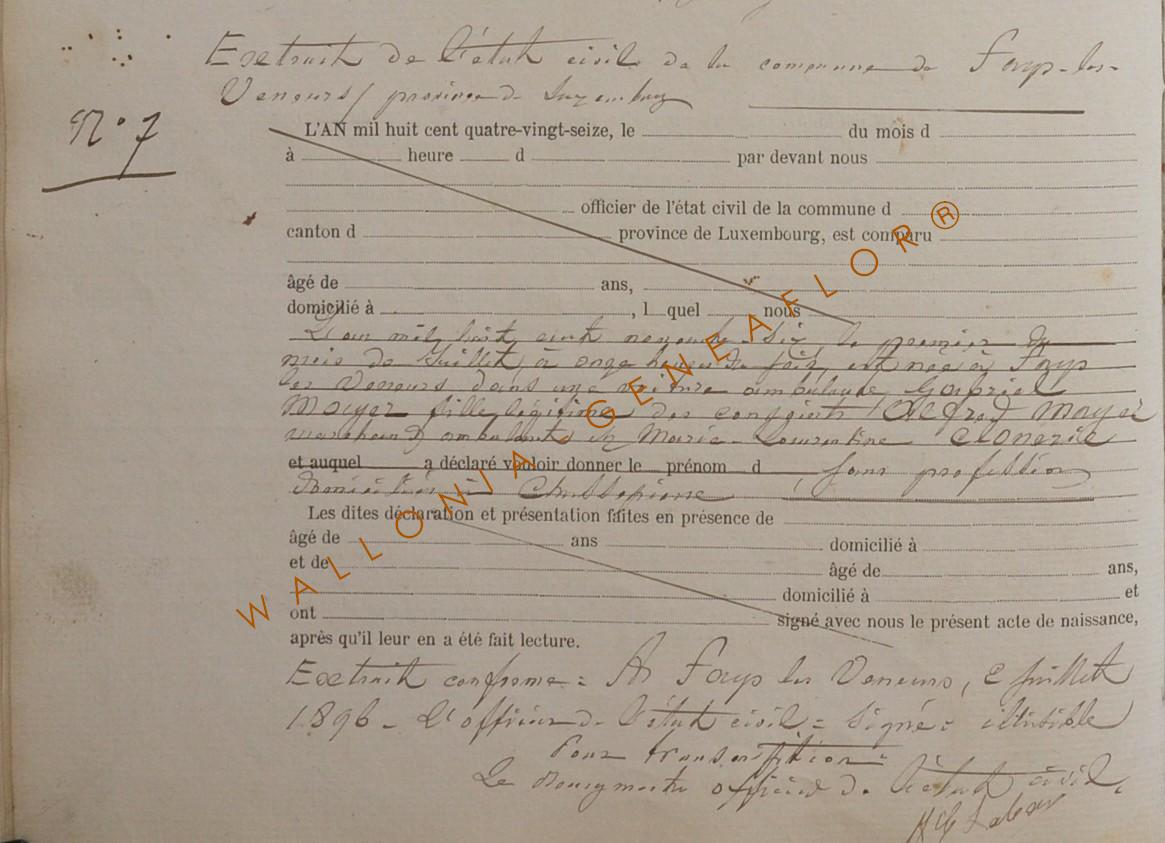 Extrait de l'état civil de la commune de Fays-les-
Veneurs / province de Luxembourg
N° 7
L'AN mil huit cent quatre-vingt-seize, le du mois d
à heure d par devant nous
officier de l'état civil de la commune d
canton d province de Luxembourg, est comparu
âgé de ans,
domicilié à , l quel nous
L'an mil huit cent nonante-six, le premier du
mois de Juillet, à onze heures du soir, est née à Fays
les Veneurs dans une voiture ambulante, Gabriel
Mayer fille légitime des conjoints Alfred Mayer
marchand ambulant et Marie-Laurentine
et auquel a déclaré vouloir donner le prénom d , sans profession
domiciliés à
Les dites déclaration et présentation faites en présence de
âgé de ans domicilié à
et de âgé de ans,
domicilié à et
ont signé avec nous le présent acte de naissance,
après qu'il leur en a été fait lecture.
Extrait conforme : A Fays les Veneurs, 2 juillet
1896 - L'officier de l'état civil = Signé = illisible
Pour transcription :
Le Bourgmestre officier de l'état civil,
WALLONIA GENEAFLOR®